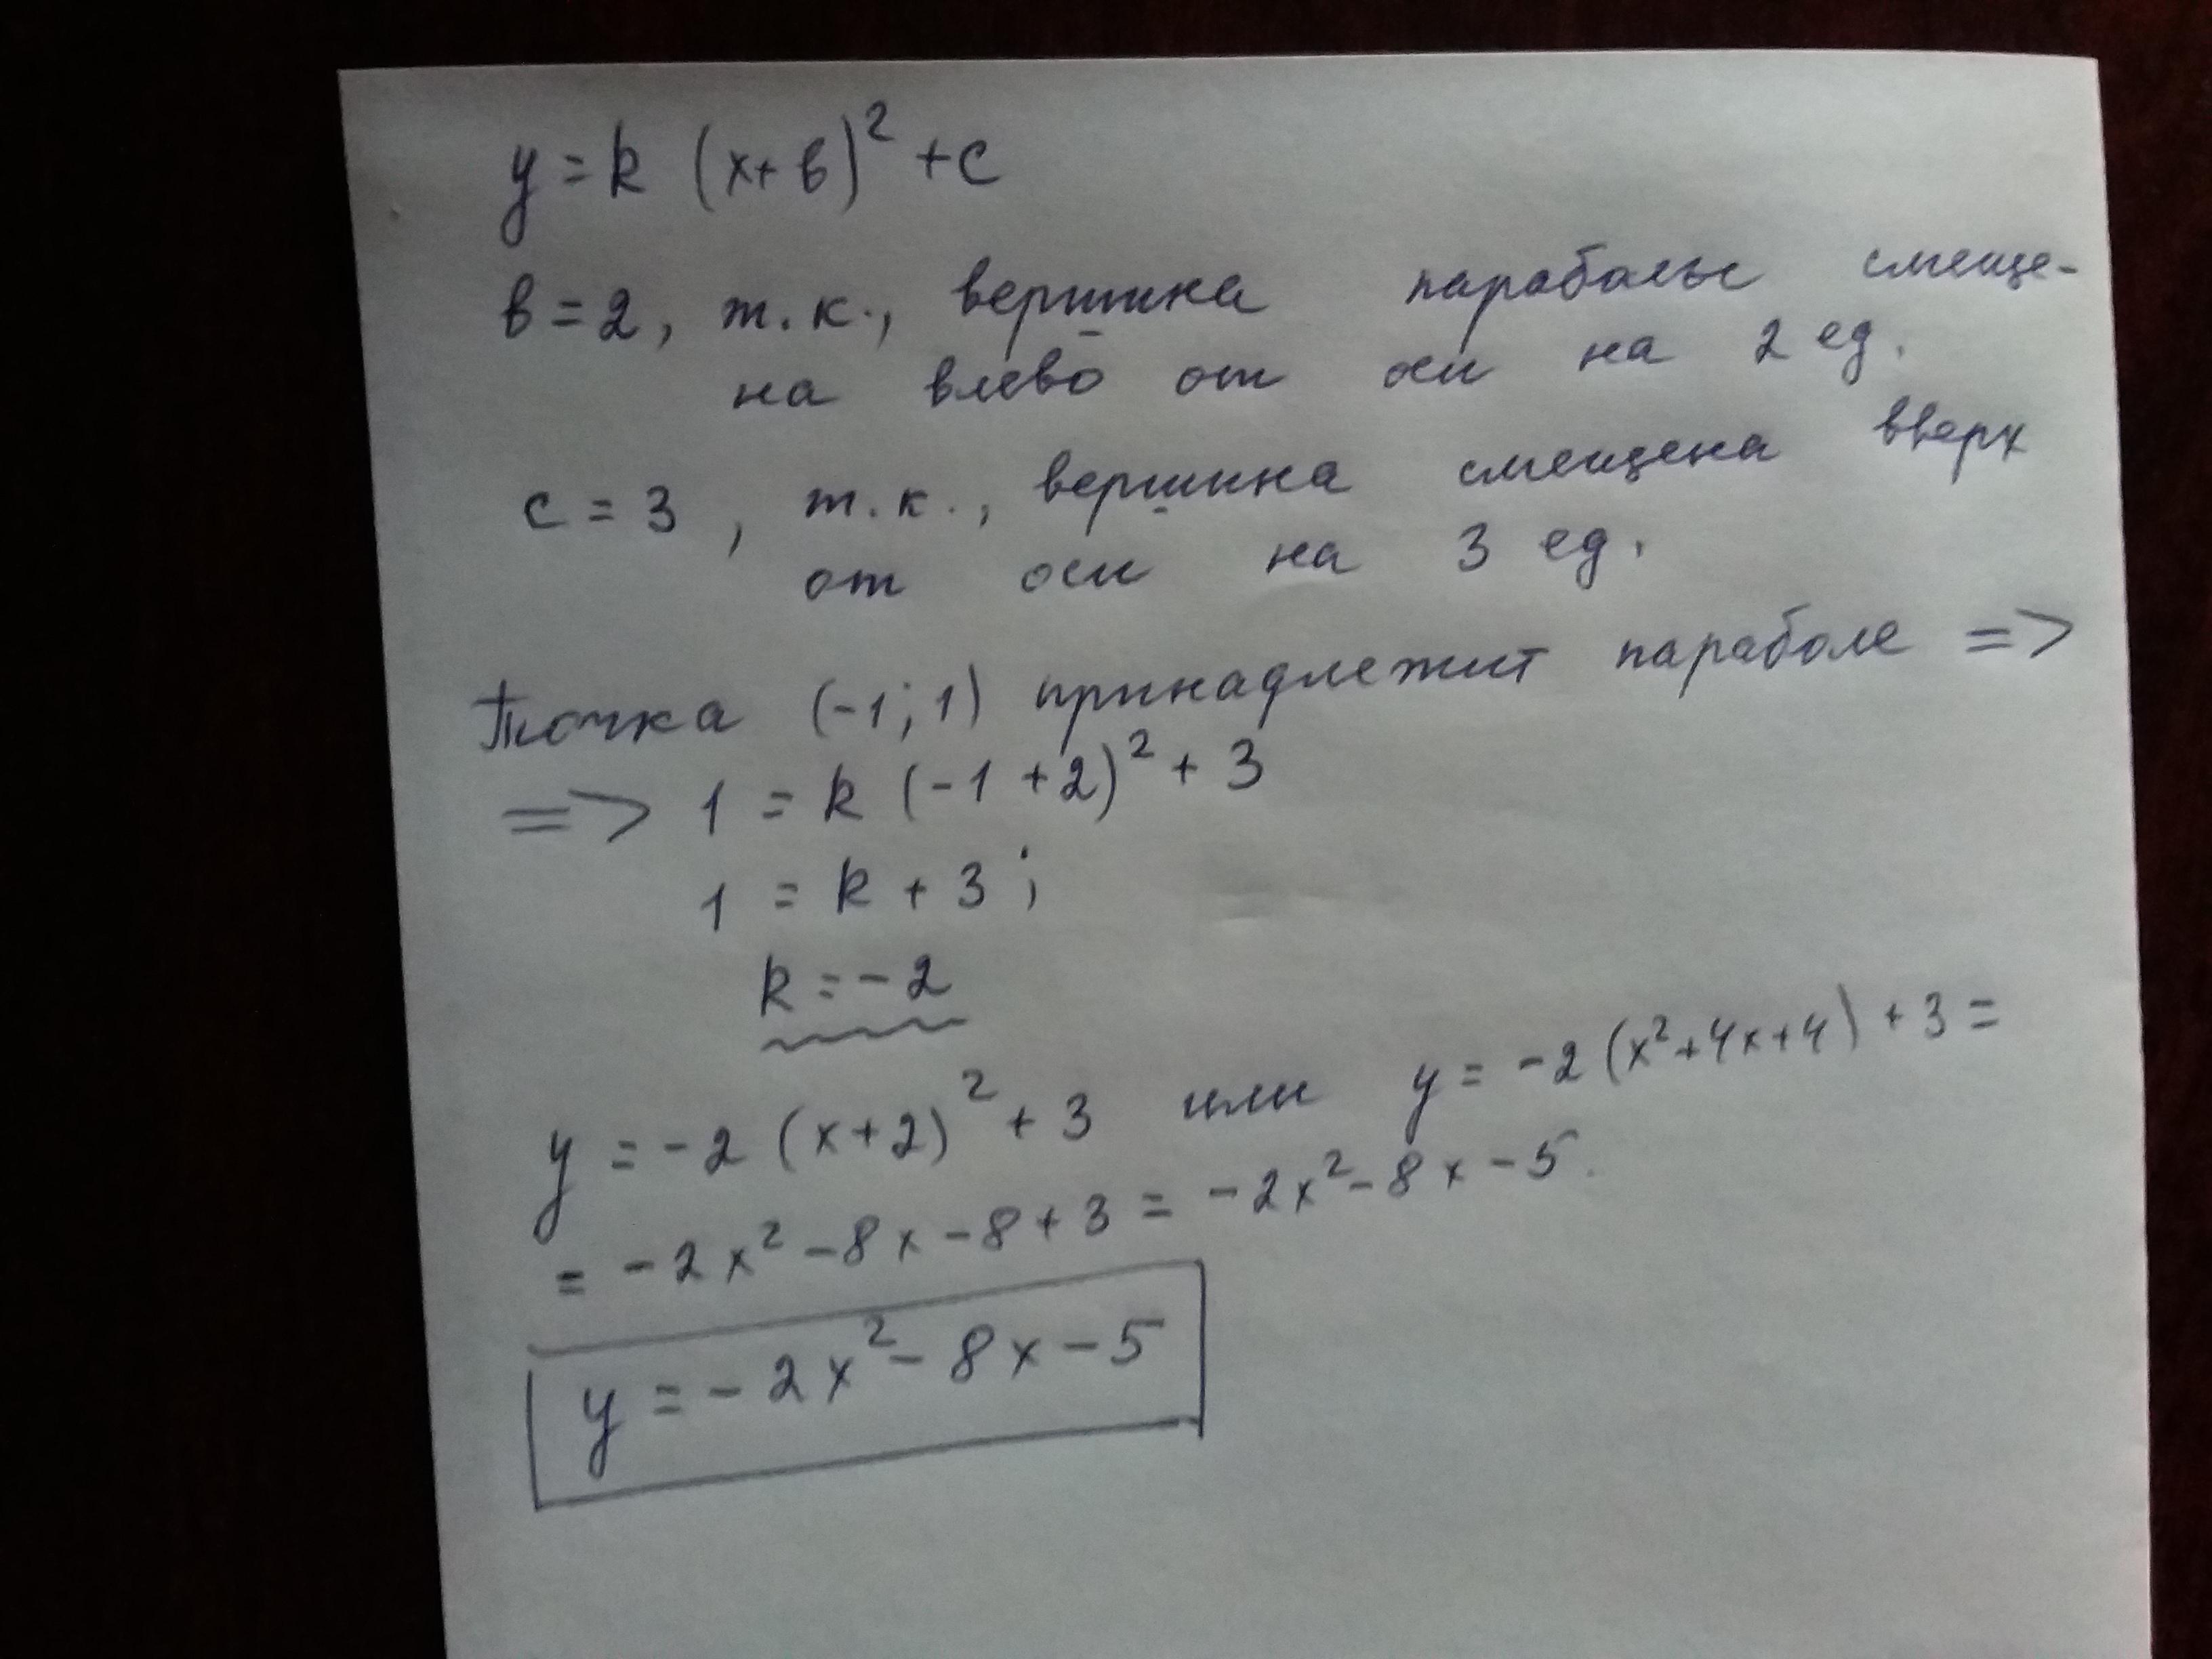 y = k (x+в)² + c
в = 2, т.к., вершина параболы смеще-
на влево от оси на 2 ед.
c = 3, т.к., вершина смещена вверх
от оси на 3 ед.
Точка (-1; 1) принадлежит параболе =>
=> 1 = k (-1 + 2)² + 3
1 = k + 3;
k = -2
y = -2 (x+2)² + 3 или y = -2 (x² + 4x + 4) + 3 =
= -2x² - 8x - 8 + 3 = -2x² - 8x - 5.
y = -2x² - 8x - 5